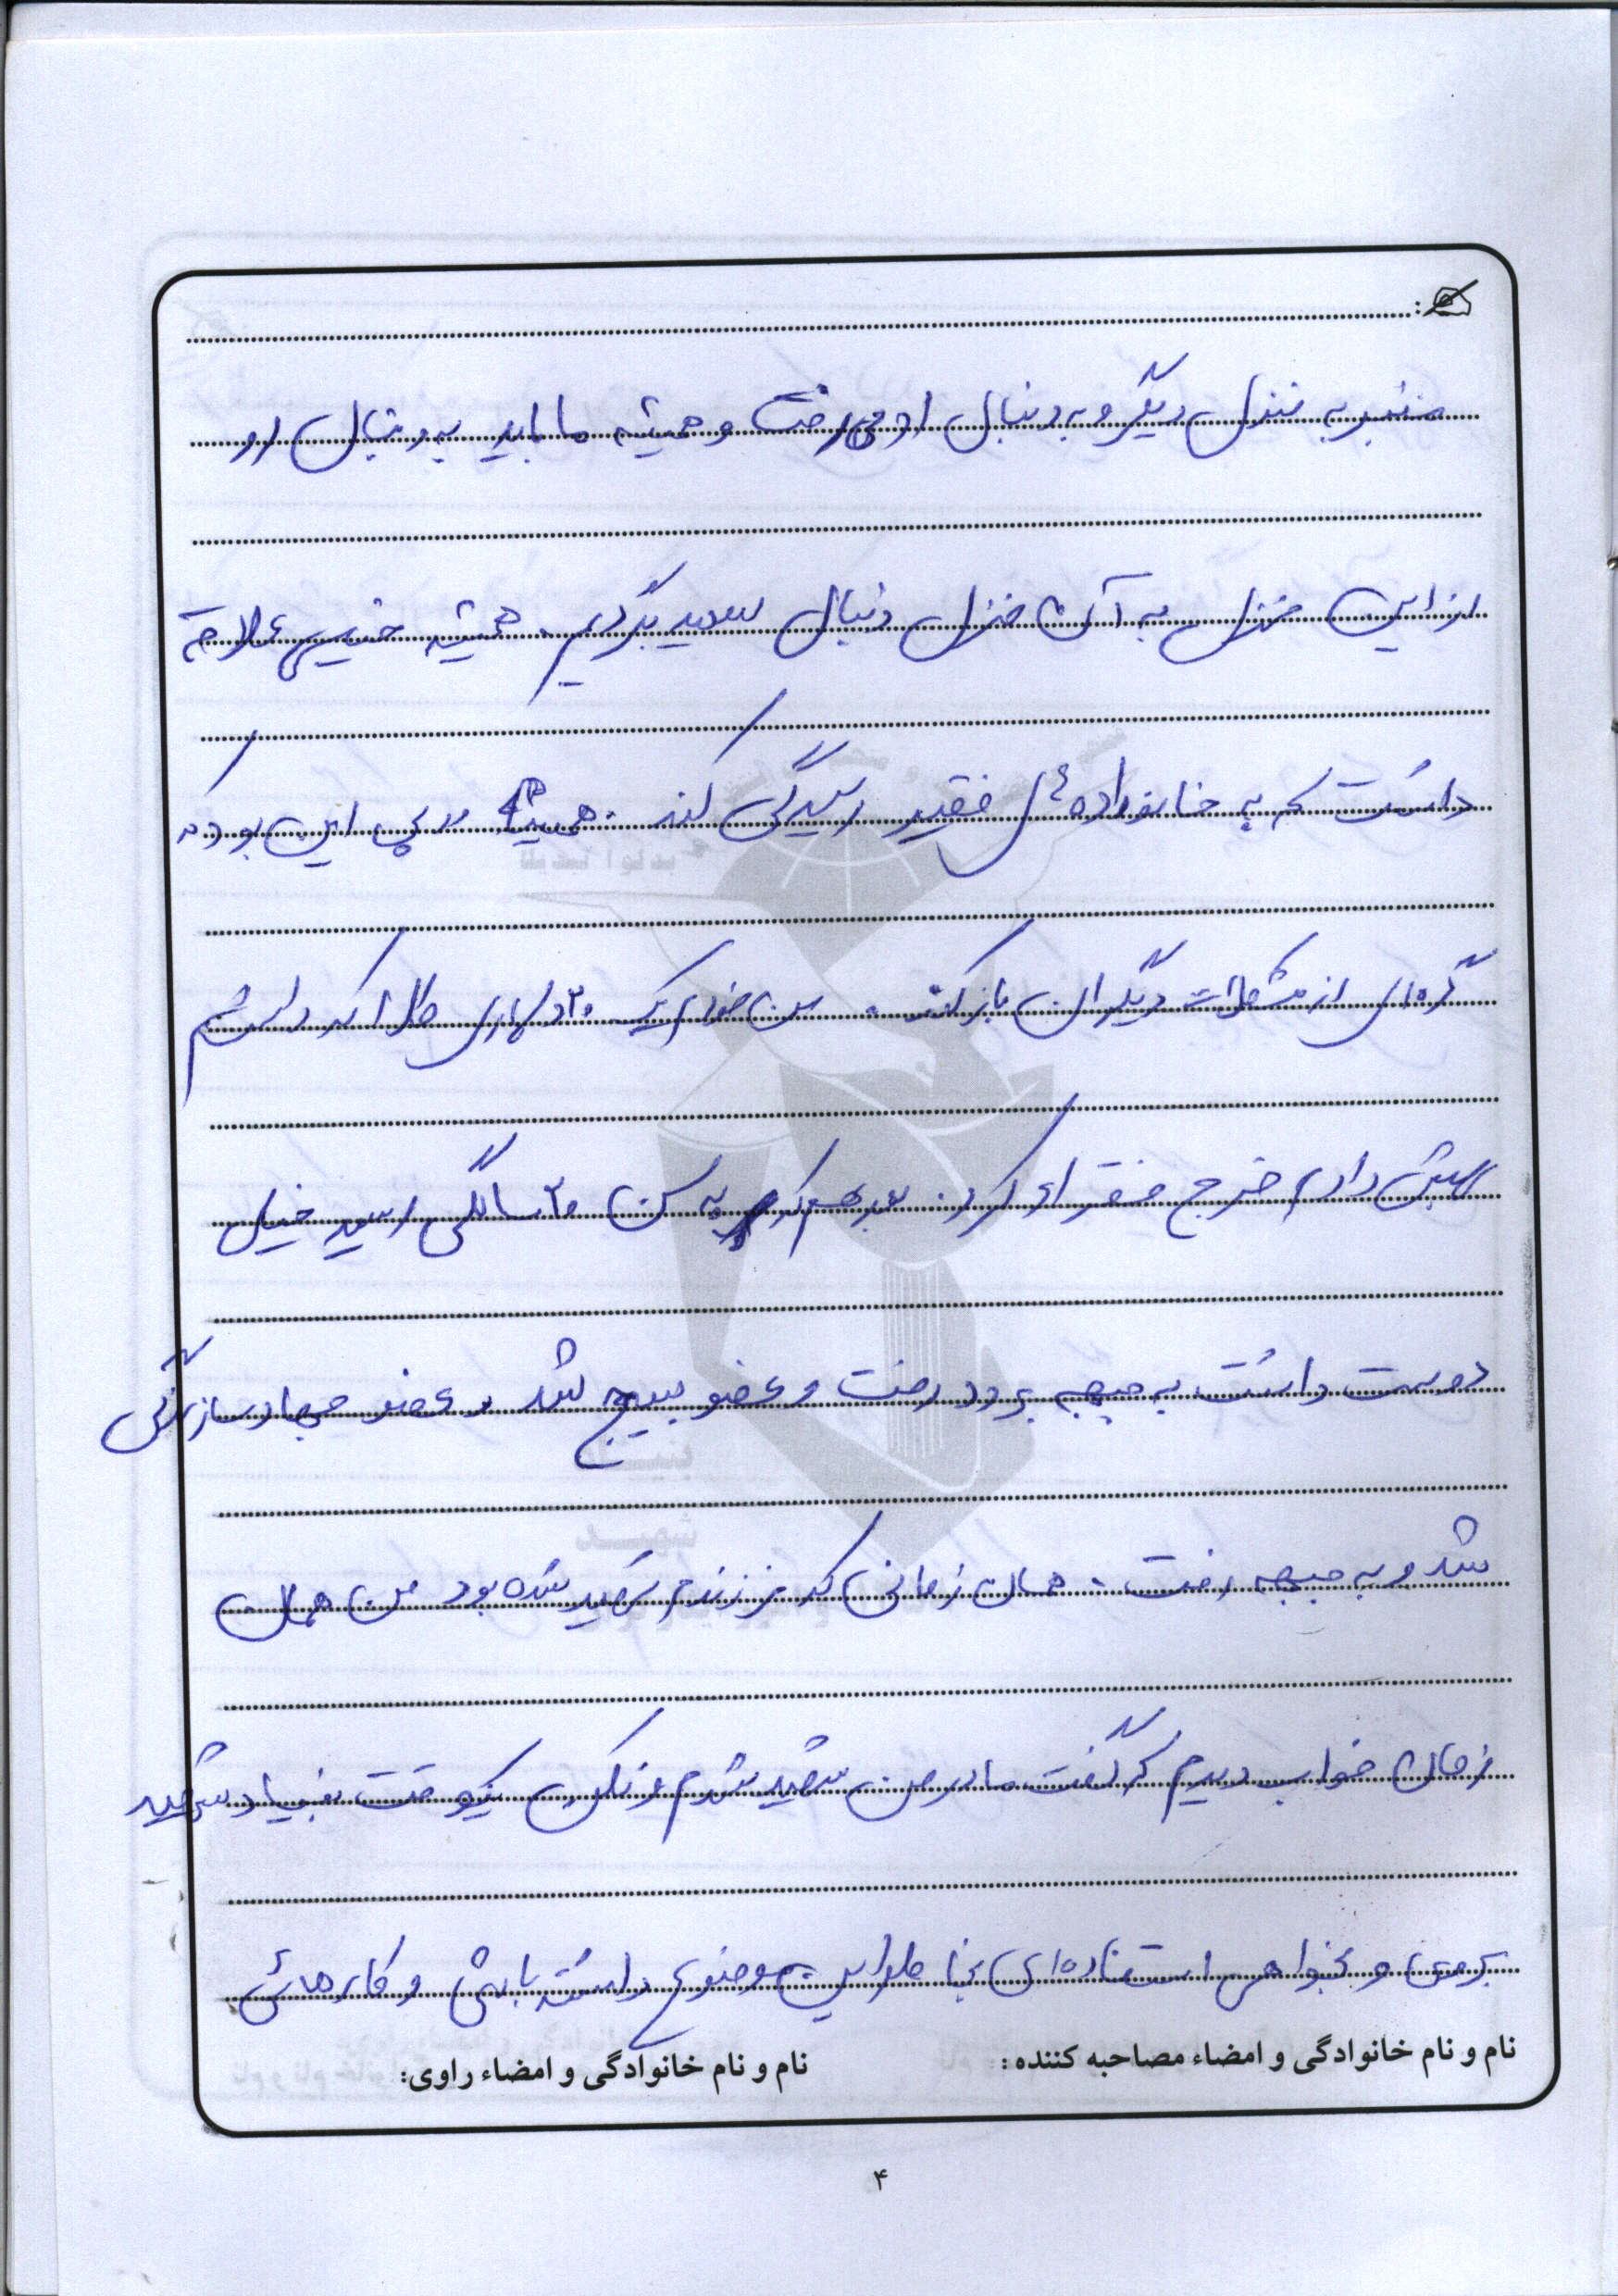 منبر به منزل دیگر و به دنبال او می رفت و همیشه ما باید به دنبال او
از این منزل به آن منزل دنبال سعید بگردیم. همیشه خیلی علاقه
داشت که به خانواده های فقیر رسیدگی کند. همیشه در پی این بود که
گره ای از مشکلات دیگران باز کند. من خودم یک ۲۰ دلاری طلا که داشتم
بهش دادم خرج فقرا کرد. بعد هم که به سن ۲۰ سالگی رسید خیلی
دوست داشت به جبهه برود رفت و عضو بسیج شد و عضو جهاد سازندگی
شد و به جبهه رفت. همان زمانی که فرزندم شهید شده بود من همان
زمان خواب دیدم که گفت مادر من شهید شدم و نکن یکوقت بنیاد شهید
بروی و بخواهی استفاده ای بخاطر این موضوع داشته باشی و کارهائی
نام و نام خانوادگی و امضاء مصاحبه کننده: نام و نام خانوادگی و امضاء راوی:
۴